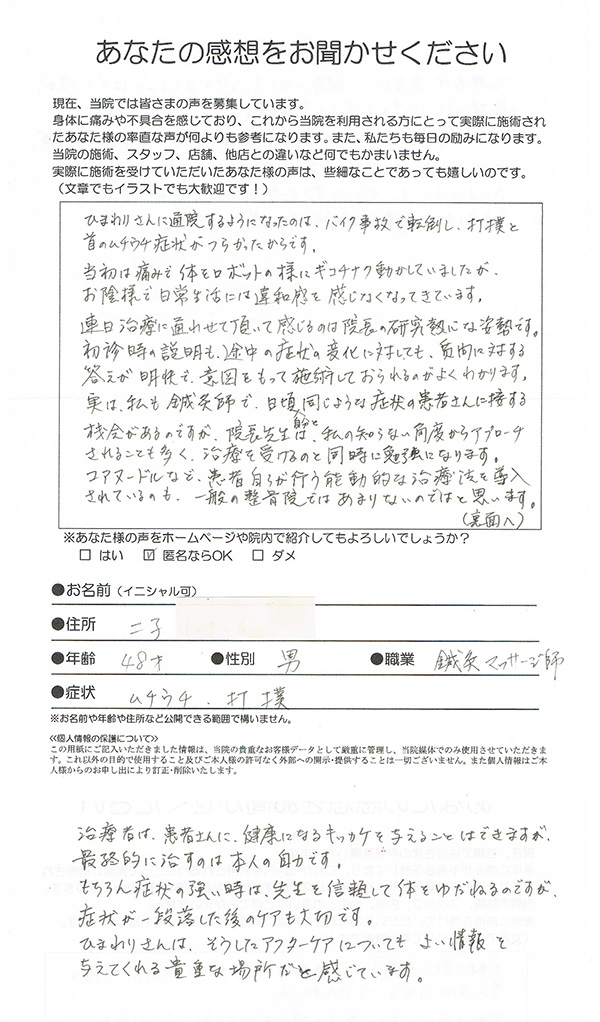 あなたの感想をお聞かせください
現在、当院では皆さまの声を募集しています。
身体に痛みや不具合を感じており、これから当院を利用される方にとって実際に施術され
たあなた様の率直な声が何よりも参考になります。また、私たちも毎日の励みになります。
当院の施術、スタッフ、店舗、他店との違いなど何でもかまいません。
実際に施術を受けていただいたあなた様の声は、些細なことであっても嬉しいのです。
（文章でもイラストでも大歓迎です！）
ひまわりさんに通院するようになったのは、バイク事故で転倒し、打撲と
首のムチウチ症状がつらかったからです。
当初は痛みで体をロボットの様にギコチナク動かしていましたが、
お陰様で日常生活には違和感を感じなくなってきています。
連日治療に通わせて頂いて感じるのは院長の研究熱心な姿勢です。
初診時の説明も、途中の症状の変化に対しても、質問に対する
答えが明快で、意図をもって施術しておられるのがよくわかります。
実は、私も鍼灸師で、日頃同じような症状の患者さんに接する
機会があるのですが、院長先生は、私の知らない角度からアプローチ
されることも多く、治療を受けるのと同時に勉強になります。
コアヌードルなど、患者自らが行う能動的な治療法を導入
されているのも、一般の整骨院ではあまりないのではと思います。
（裏面へ）
※あなた様の声をホームページや院内で紹介してもよろしいでしょうか？
□ はい ☑ 匿名ならOK □ ダメ
●お名前（イニシャル可）
●住所 二子
●年齢 48才 ●性別 男 ●職業 鍼灸マッサージ師
●症状 ムチウチ、打撲
※お名前や年齢や住所など公開できる範囲で構いません。
≪個人情報の保護について≫
この用紙にご記入いただきました情報は、当院の貴重なお客様データとして厳重に管理し、当院媒体でのみ使用させていただきま
す。これ以外の目的で使用すること及びご本人様の許可なく外部への開示・提供することは一切ございません。また個人情報はご本
人様からのお申し出により訂正・削除いたします。
治療者は、患者さんに、健康になるキッカケを与えることはできますが、
最終的に治すのは本人の自力です。
もちろん症状の強い時は、先生を信頼して体をゆだねるのですが、
症状が一段落した後のケアも大切です。
ひまわりさんは、そうしたアフターケアについてもよい情報を
与えてくれる貴重な場所だと感じています。